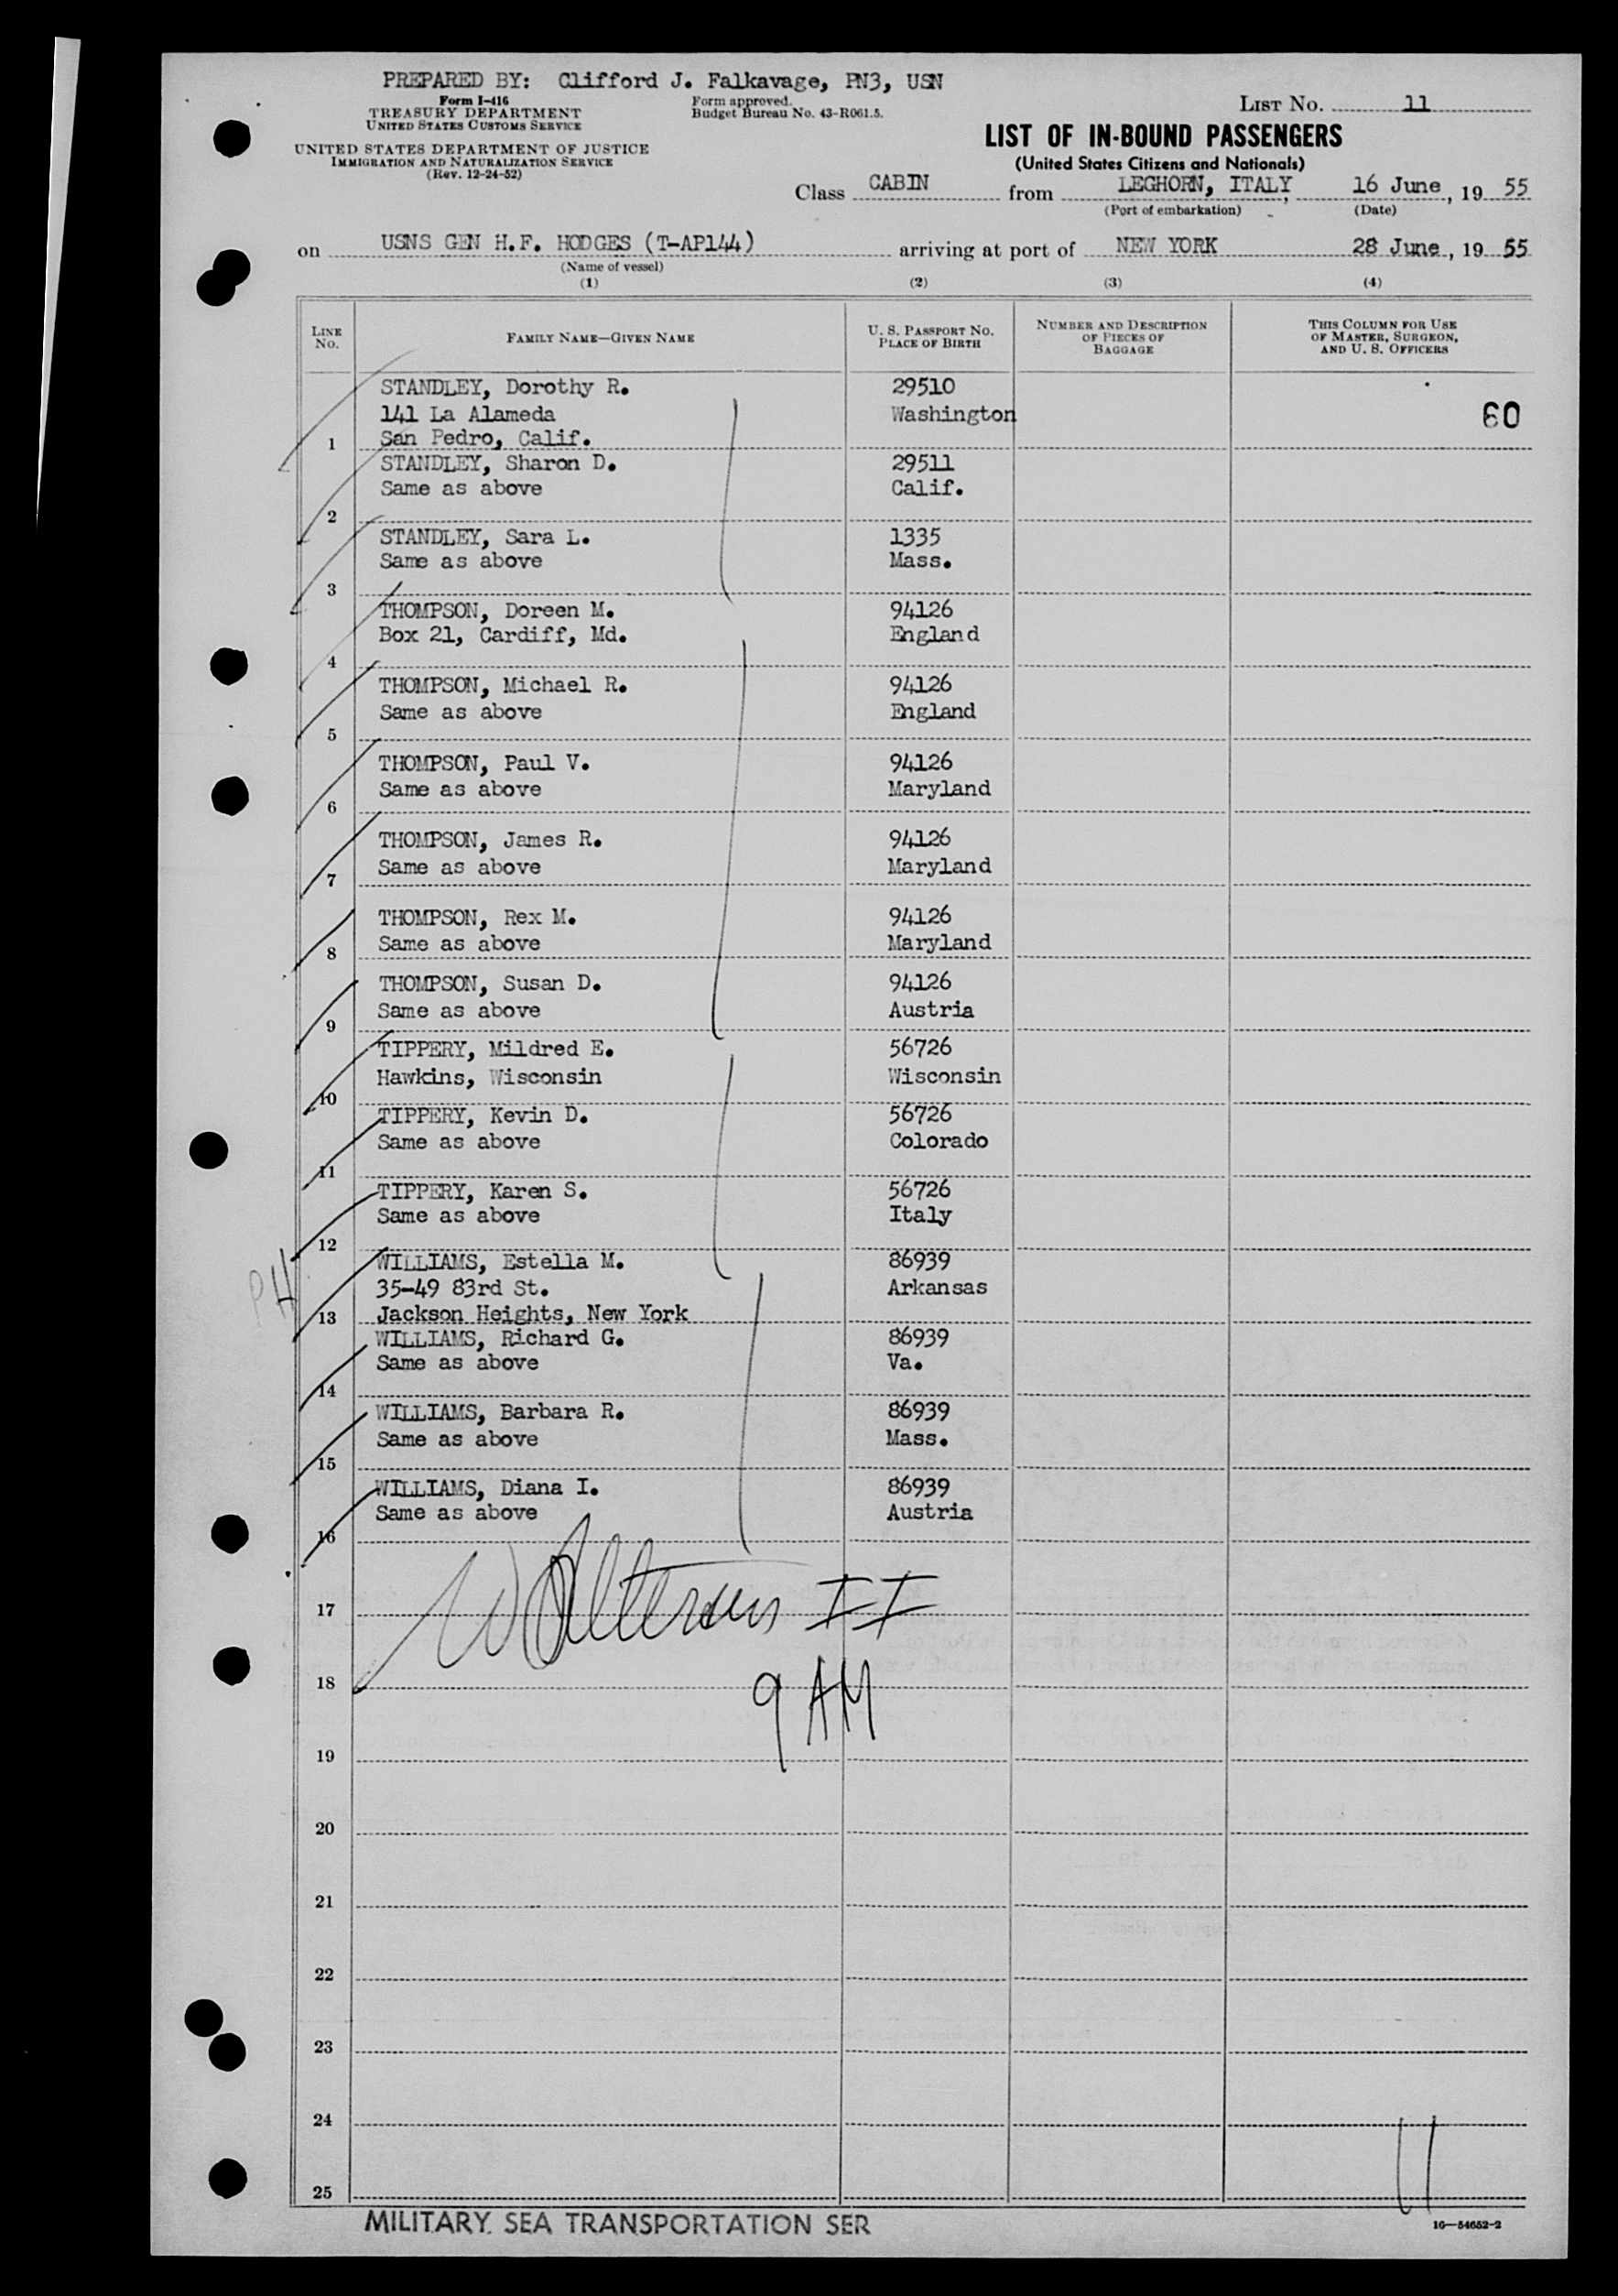 PREPARED BY: Clifford J. Falkavage, PN3, USN
Form I-416
TREASURY DEPARTMENT
UNITED STATES CUSTOMS SERVICE
UNITED STATES DEPARTMENT OF JUSTICE
IMMIGRATION AND NATURALIZATION SERVICE
(Rev. 12-24-52)
Form approved.
Budget Bureau No. 43-R061.5.
LIST No. 11
LIST OF IN-BOUND PASSENGERS
(United States Citizens and Nationals)
Class CABIN from LEGHORN, ITALY, 16 June, 19 55
(Port of embarkation) (Date)
on USNS GEN H.F. HODGES (T-AP144) arriving at port of NEW YORK 28 June, 19 55
(Name of vessel)
(1) (2) (3) (4)
LINE No. FAMILY NAME—GIVEN NAME U. S. PASSPORT No. PLACE OF BIRTH NUMBER AND DESCRIPTION OF PIECES OF BAGGAGE THIS COLUMN FOR USE OF MASTER, SURGEON, AND U. S. OFFICERS
STANDLEY, Dorothy R. 29510
141 La Alameda Washington 60
1 San Pedro, Calif.
STANDLEY, Sharon D. 29511
Same as above Calif.
2
STANDLEY, Sara L. 1335
Same as above Mass.
3
THOMPSON, Doreen M. 94126
Box 21, Cardiff, Md. England
4
THOMPSON, Michael R. 94126
Same as above England
5
THOMPSON, Paul V. 94126
Same as above Maryland
6
THOMPSON, James R. 94126
Same as above Maryland
7
THOMPSON, Rex M. 94126
Same as above Maryland
8
THOMPSON, Susan D. 94126
Same as above Austria
9
TIPPERY, Mildred E. 56726
Hawkins, Wisconsin Wisconsin
10
TIPPERY, Kevin D. 56726
Same as above Colorado
11
TIPPERY, Karen S. 56726
Same as above Italy
12
WILLIAMS, Estella M. 86939
35-49 83rd St. Arkansas
PH
13 Jackson Heights, New York
WILLIAMS, Richard G. 86939
Same as above Va.
14
WILLIAMS, Barbara R. 86939
Same as above Mass.
15
WILLIAMS, Diana I. 86939
Same as above Austria
16
17 II
18 9 AM
19
20
21
22
23
24
11
25
MILITARY SEA TRANSPORTATION SER
16—54652-2